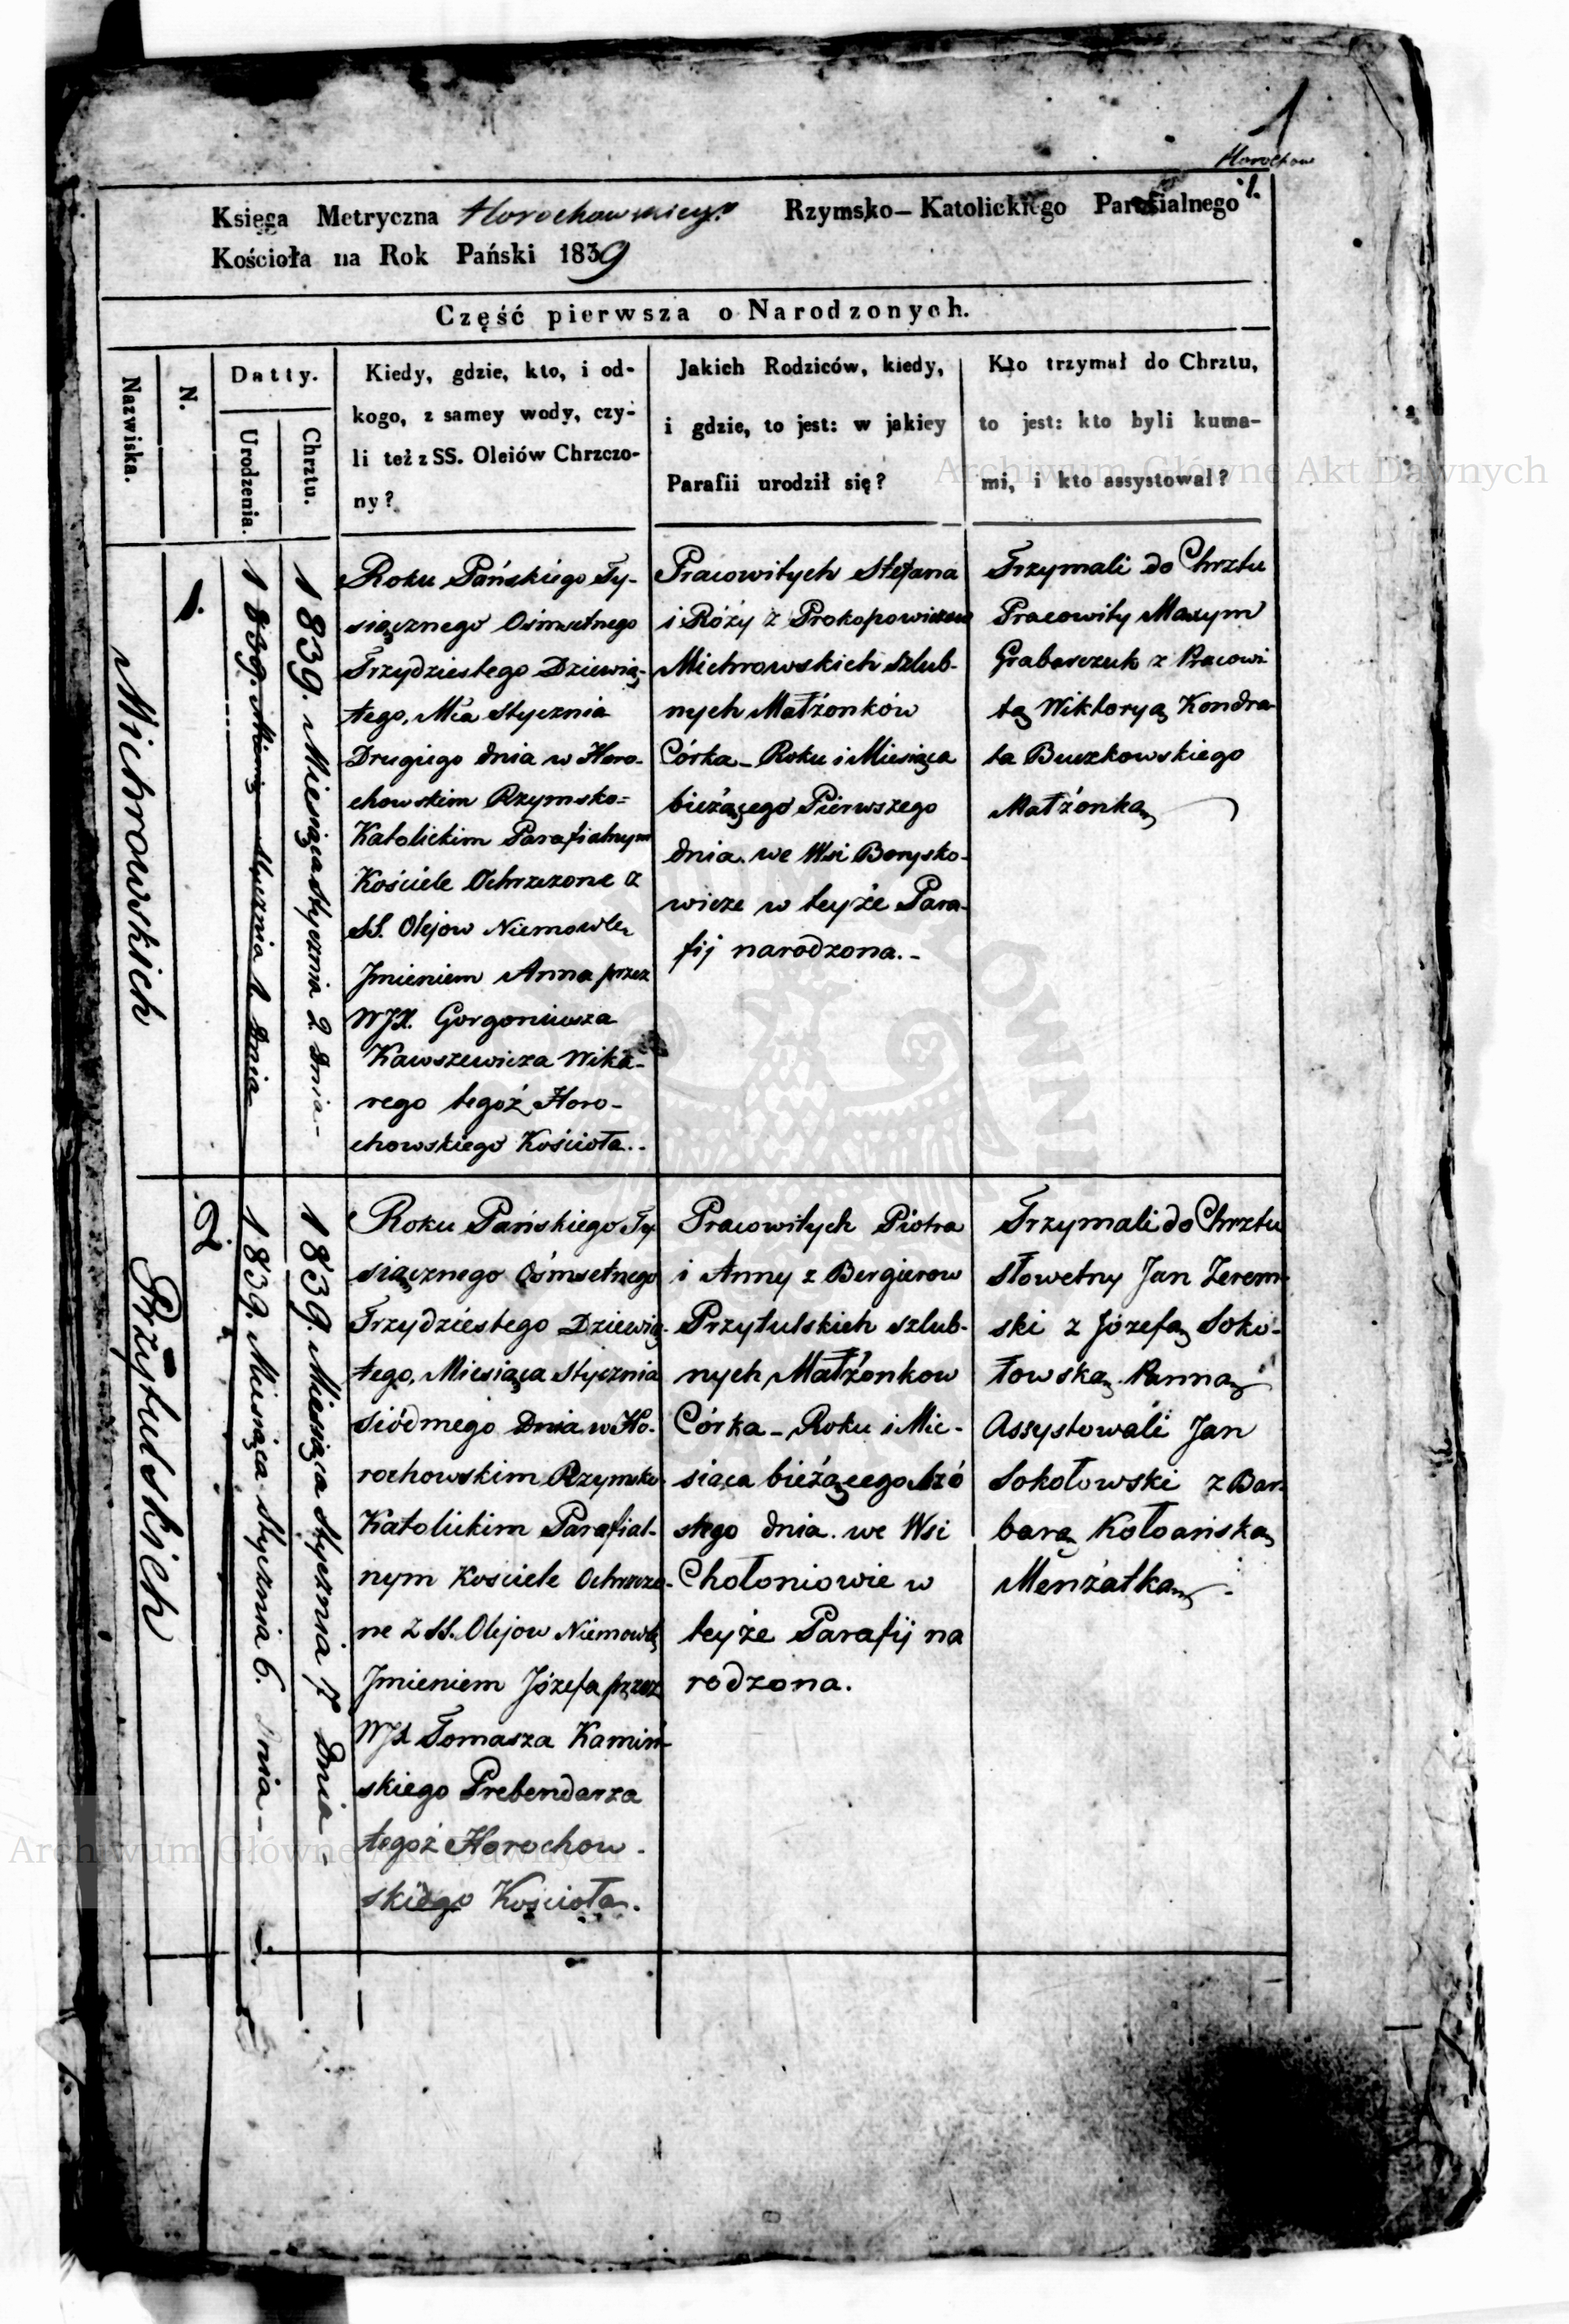 1
Horochow
1.
Księga Metryczna Horochowskiego Rzymsko-Katolickiego Parafialnego
Kościoła na Rok Pański 1839
Część pierwsza o Narodzonych.
Nazwiska.
N.
Datty.
Urodzenia.
Chrztu.
Kiedy, gdzie, kto, i od-
kogo, z samey wody, czy-
li też z SS. Oleiów Chrzczo-
ny?
Jakich Rodziców, kiedy,
i gdzie, to jest: w jakiey
Parafii urodził się?
Kto trzymał do Chrztu,
to jest: kto byli kuma-
mi, i kto assystował?
Archiwum Główne Akt Dawnych
Michrowskich
1.
1839. Miesią Stycznia 1. Dnia
1839. Miesiąca Stycznia 2 Dnia-
Roku Pańskiego Ty-
siącznego Ośmsetnego
Trzydziestego Dziewią-
tego, Mca Stycznia
Drugiego dnia w Horo-
chowskim Rzymsko=
Katolickim Parafialnym
Kościele Ochrzczone z
SS. Olejow Niemowle
Jmieniem Anna przez
WJX. Gorgoniusza
Kawszewicza Wika-
rego tegoż Horo-
chowskiego Kościoła.-
Pracowitych Stefana
i Róży z Prokopowiczow
Michrowskich szlub-
nych Małżonków
Córka - Roku i Miesiąca
bieżącego Pierwszego
dnia we Wsi Borysko-
wicze w teyże Para-
fij narodzona.-
Trzymali do Chrztu
Pracowity Maxym
Grabarczuk z Pracowi
tą Wiktoryą Kondra-
ta Buczkowskiego
Małżonką
Przytulskich
2.
1839. Miesiąca Stycznia 6. Dnia-
1839. Miesiąca Stycznia 7 Dnia-
Roku Pańskiego Ty
siącznego Ośmsetnego
Trzydziestego Dziewią-
tego, Miesiąca Stycznia
siódmego Dnia w Ho-
rochowskim Rzymsko
Katolickim Parafial-
nym Kościele Ochrzczo-
ne z SS. Olejow Niemowlę
Jmieniem Józefa przez
WJX Tomasza Kamiń-
skiego Prebendarza
tegoż Horochow-
skiego Kościoła.
Pracowitych Piotra
i Anny z Bergierow
Przytulskich szlub-
nych Małżonkow
Córka - Roku i Mie-
siąca bieżącego Szó
stego dnia we Wsi
Chołoniowie w
teyże Parafij na
rodzona.
Trzymali do Chrztu
Słowetny Jan
ski z Józefą Soko-
łowską Panną
Assystowali Jan
Sokołowski z Bar-
barą
Mężatką
Archiwum Główne Akt Dawnych